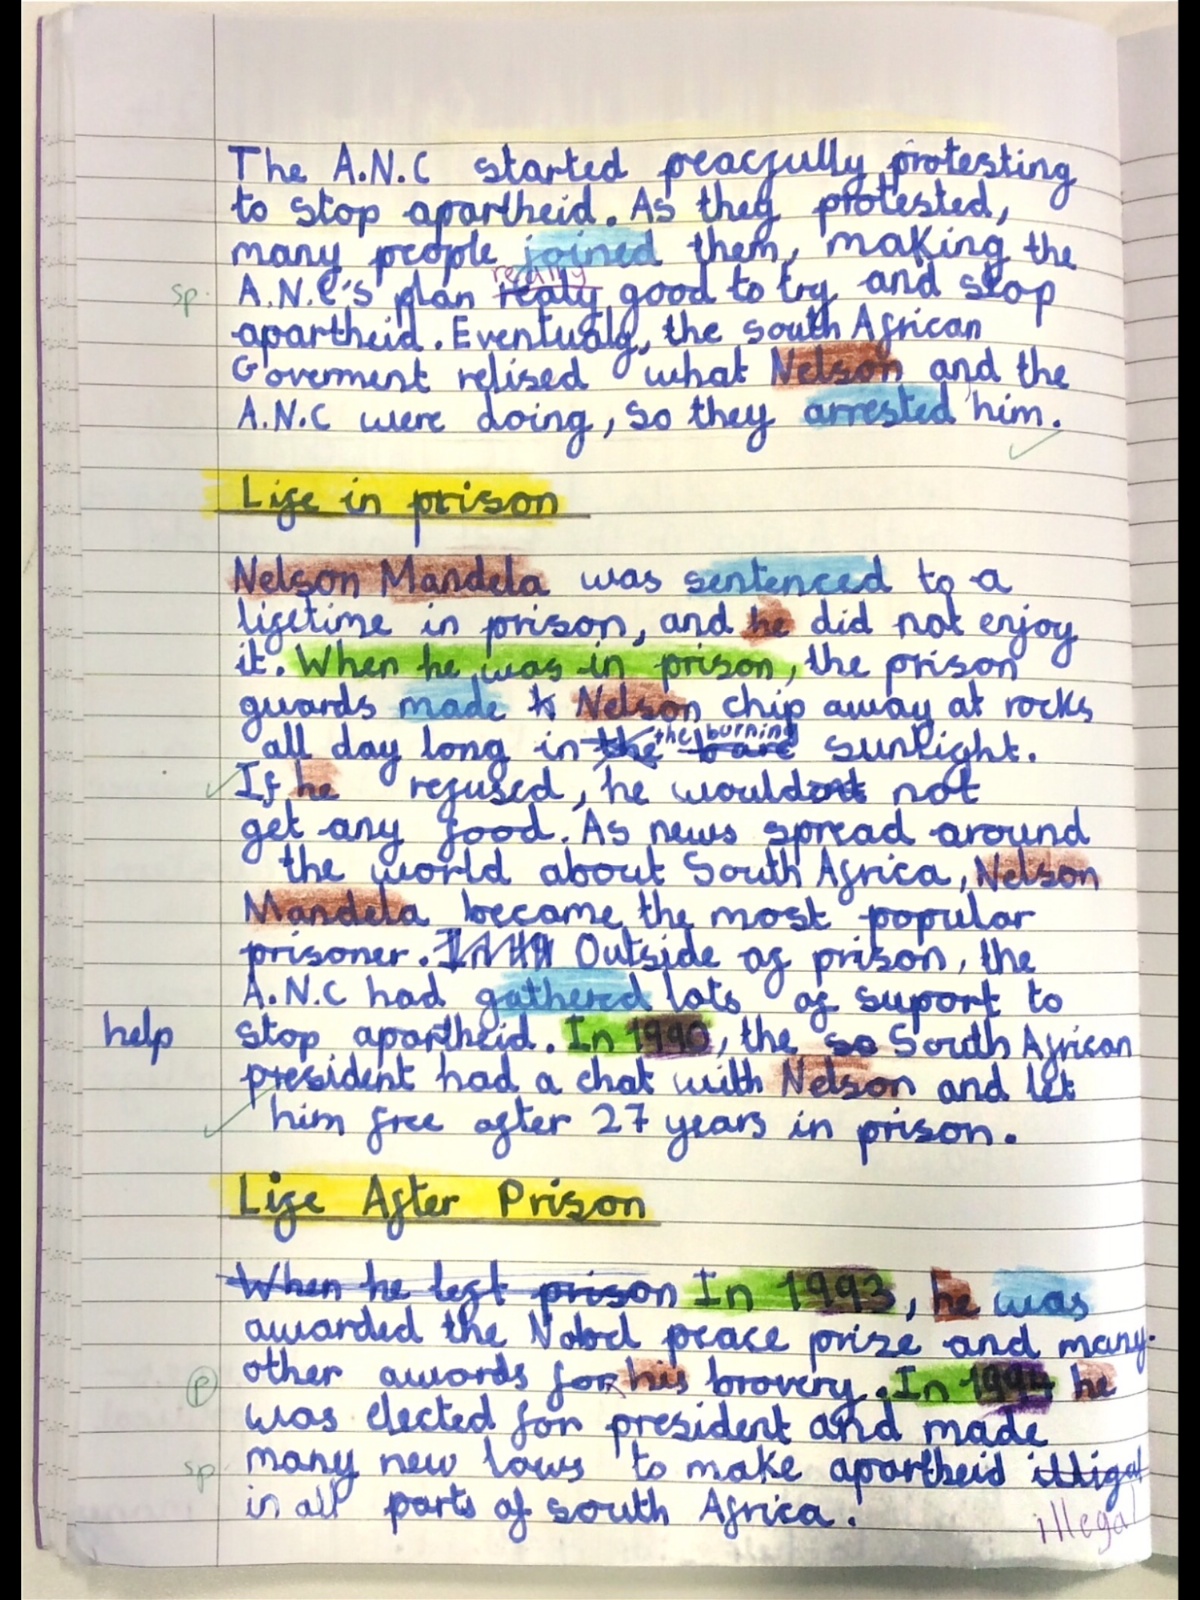 The A.N.C started peacfully protesting
to stop apartheid. As they protested,
many people joined them, making the
really
sp. A.N.C's plan realy good to try and stop
apartheid. Eventualy, the south African
Goverment relised what Nelson and the
A.N.C were doing, so they arrested him.
Life in prison
Nelson Mandela was sentenced to a
lifetime in prison, and he did not enjoy
it. When he was in prison, the prison
guards made Nelson chip away at rocks
the burning
all day long in the bare sunlight.
If he refused, he would not
get any food. As news spread around
the world about South Africa, Nelson
Mandela became the most popular
prisoner. Outside of prison, the
A.N.C had gathered lots of suport to
help stop apartheid. In 1990, the so South African
president had a chat with Nelson and let
him free after 27 years in prison.
Life After Prison
When he left prison In 1993, he was
awarded the Nobel peace prize and many
P other awards for his bravery. In 1994 he
was elected for president and made
sp. many new laws to make apartheid illigal
in all parts of south Africa.
illegal